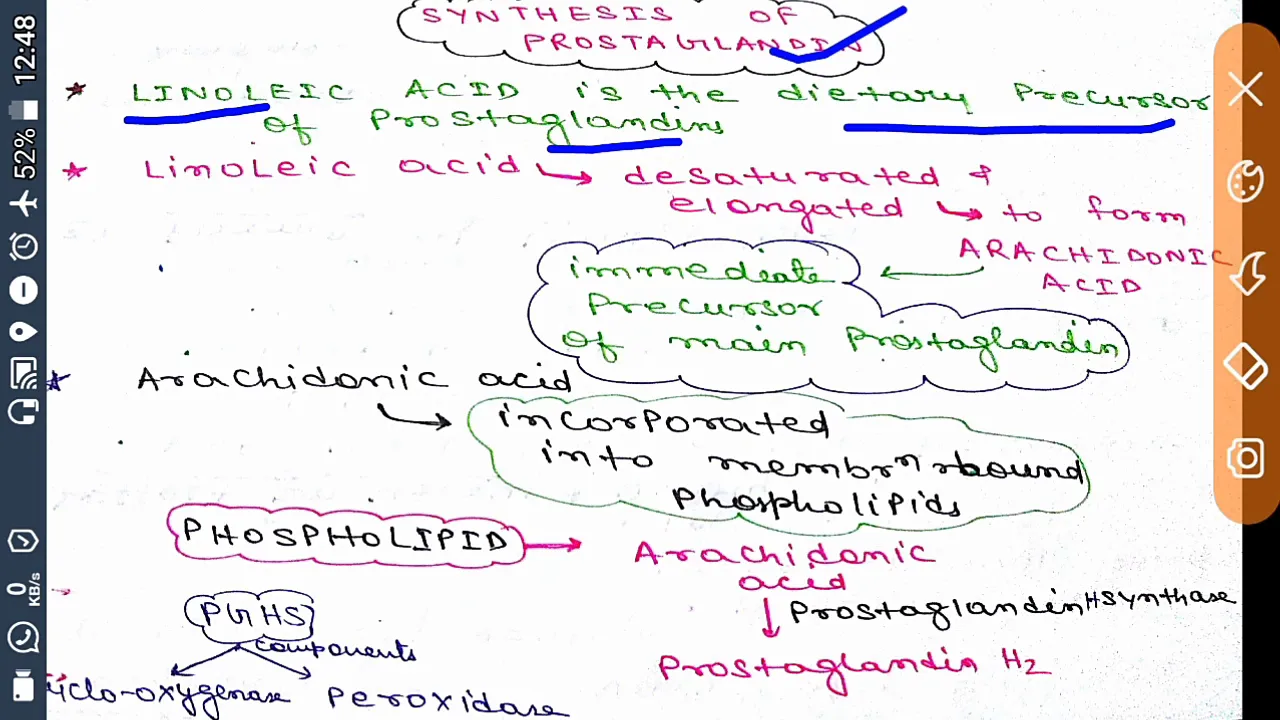 SYNTHESIS OF
PROSTAGLANDIN
* LINOLEIC ACID is the dietary Precursor
of Prostaglandins
* Linoleic acid → desaturated &
elongated → to form
ARACHIDONIC
ACID
immediate
Precursor
of main Prostaglandin
* Arachidonic acid
incorporated
into membrn bound
Phospholipids
PHOSPHOLIPID → Arachidonic
acid
↓ Prostaglandin H Synthase
Prostaglandin H2
PGHS
components
Cyclo-oxygenase Peroxidase
12:48
52%
0
KB/s